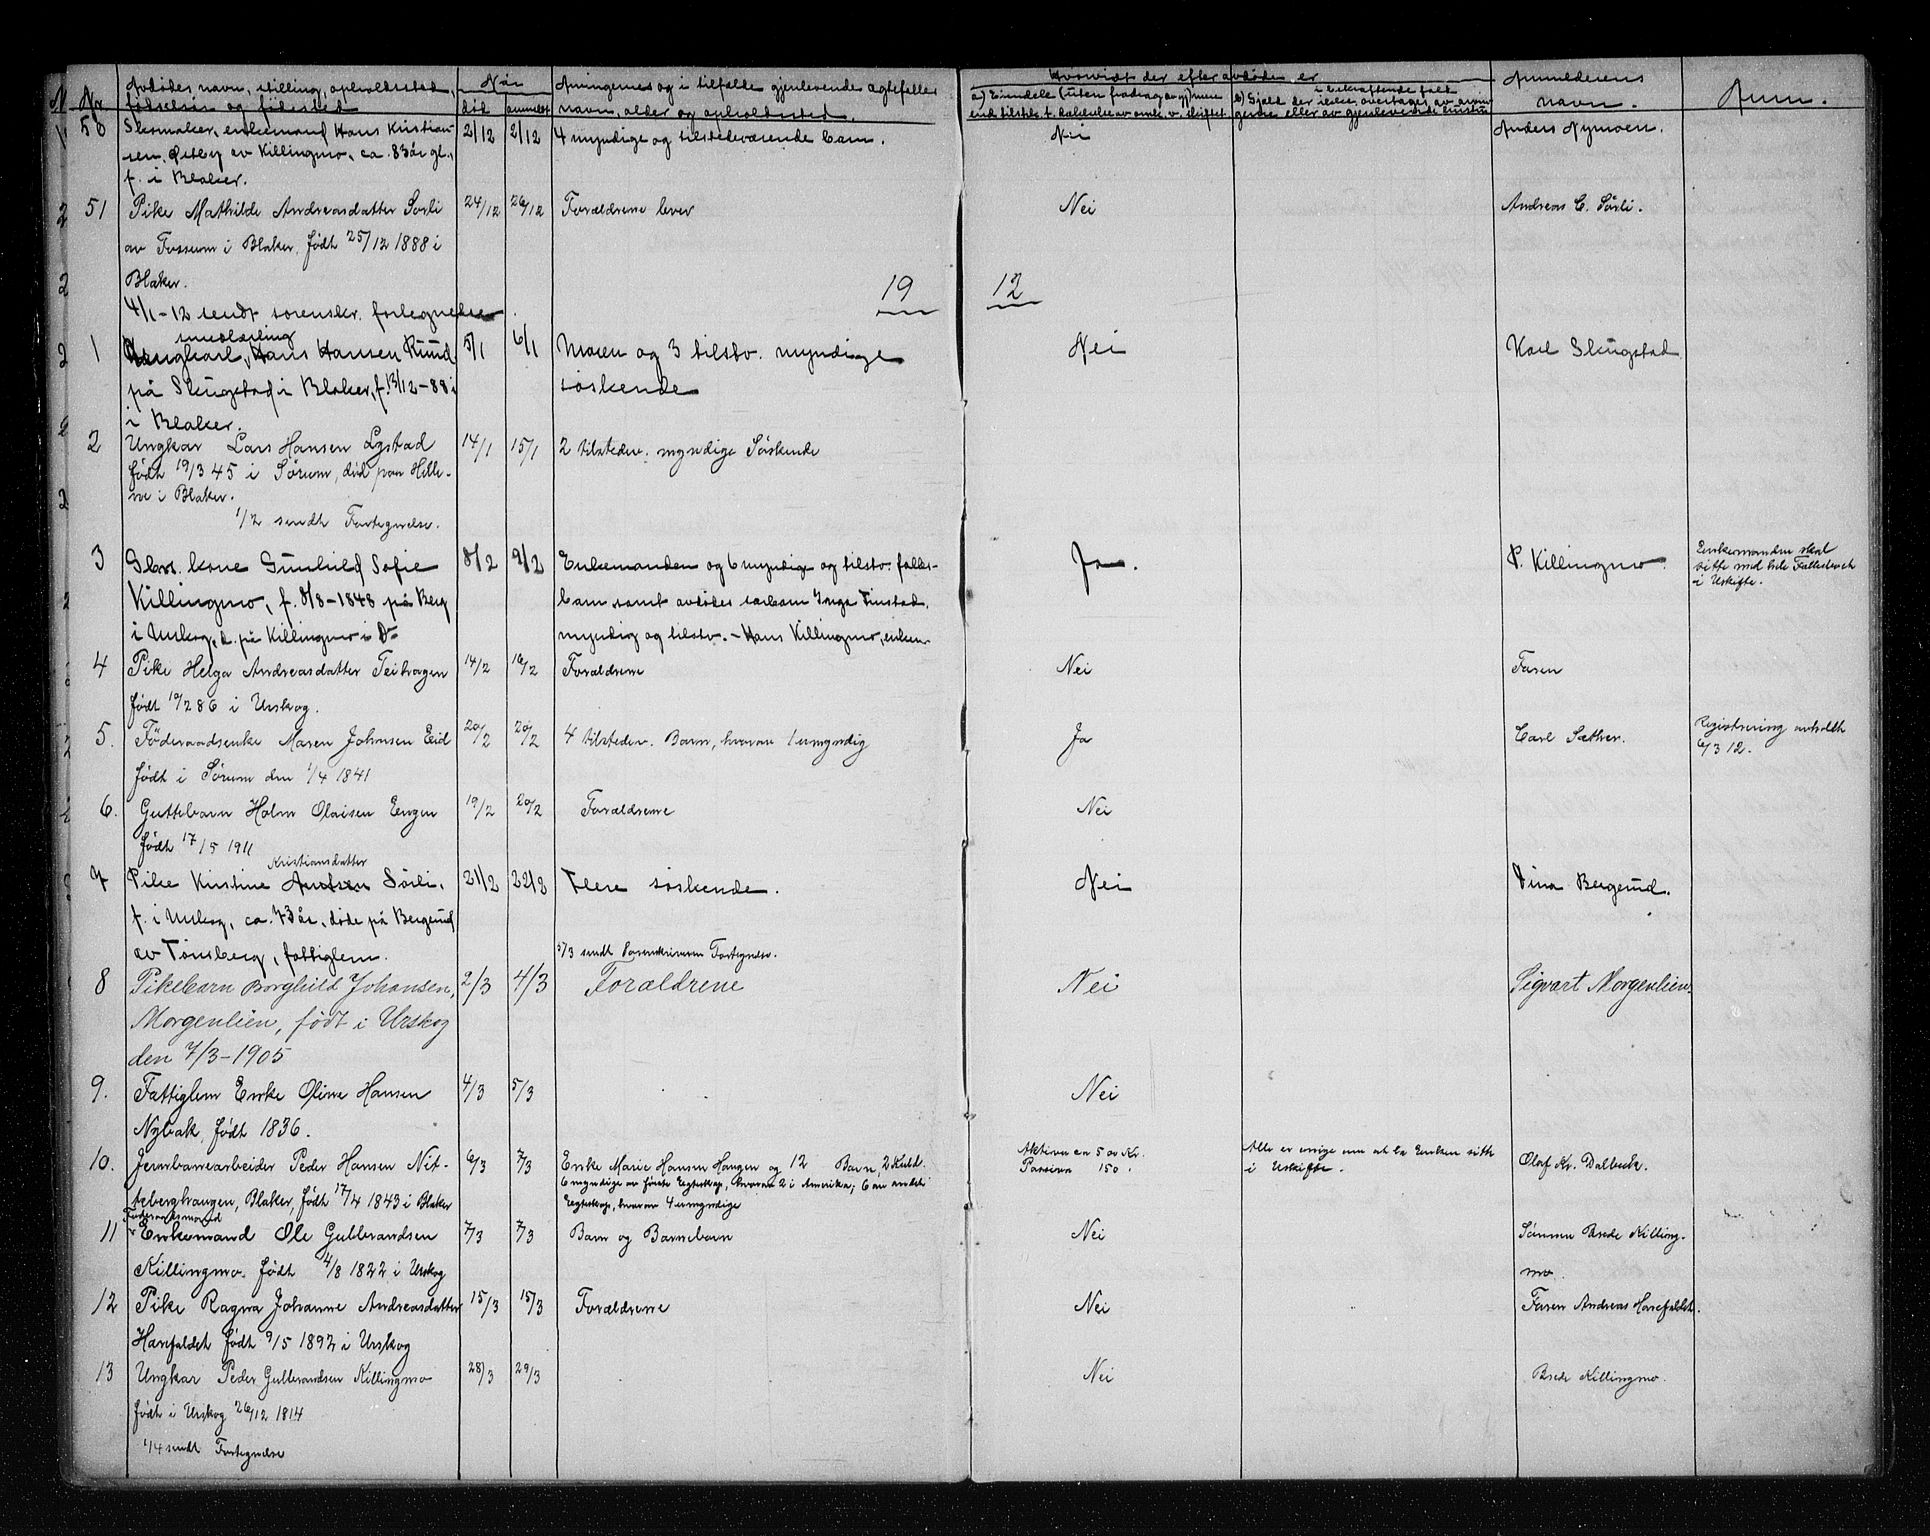 No Avdødes navn, stilling, opholdssted, fødselsår og fødested Når død anmeldt Arvingernes og i tilfælde gjenlevende ægtefælles navn, alder og opholdssted. Hvorvidt der efter avdøde er Anmelderens navn. Anm.
50 Skomaker, enkemand Hans Kristian- 2/12 2/12 4 myndige og tilstedeværende barn. Nei Anders Nymoen.
sen, Østby av Killingmo, ca. 83 år gl.,
f. i Blaker.
51 Pike Mathilde Andreasdatter Sørli 24/12 26/12 Forældrene lever Nei Andreas C. Sørli.
av Fossum i Blaker, født 25/12 1888 i
Blaker.
4/1-12 sendt sorenskr. fortegnelse
19 12
1 Ungkarl, Hans Hansen Ruud 5/1 6/1 Moren og 3 tilstv. myndige Nei Karl Skugstad
på Skugstad i Blaker, f. 13/12-88 i
søskende
i Blaker.
2 Ungkar Lars Hansen Lystad 14/1 15/1 2 tilstedev. myndige Søskende
født 19/3 45 i Sørum, død paa Hille-
ne i Blaker.
1/2 sendt Fortegnelse.
3 Gbr. kone Gunhild Sofie 8/2 9/2 Enkemanden og 6 myndige og tilstv. fælles- Ja. P. Killingmo Enkemanden skal
sitte med hele Fællesboet
i Uskifte.
Killingmo, f. 8/8-1848 på Berg barn samt avdødes særbarn Inga Finstad,
i Urskog, d. på Killingmo i Do myndig og tilstv. - Hans Killingmo, enkem.
4 Pike Helga Andreasdatter Teihagen 14/2 16/2 Forældrene Nei Faren
født 19/2 86 i Urskog.
5. Føderaadsenke Maren Johnsen Eid 20/2 20/2 4 tilstedev. Barn, hvorav 1 umyndig Ja Carl Sæther. Registrering avholdt
6/3 12.
født i Sørum den 1/4 1841
6. Guttebarn Holm Olaisen Engen 19/2 20/2 Forældrene Nei
født 17/5 1911
Kristiansdatter
7 Pike Kristine Sørli, 21/2 22/2 Flere søskende. Nei Dina Bergerud.
f. i Urskog, ca. 73 år, døde på Bergerud
av Tønsberg, fattiglem. 5/3 sendt Sorenskriveren Fortegnelse.
8 Pikebarn Borghild Johansen, 2/3 4/3 Forældrene Nei Sigvart Morgenlien.
Morgenlien, født i Urskog
den 7/3-1905
9. Fattiglem Enke Oline Hansen 4/3 5/3 Nei
Nybak, født 1836.
10. Jernbanearbeider Peder Hansen Nit- 6/3 7/3 Enke Marie Hansen Haugen og 12 Barn, 2 Kuld. Aktiva ca 500 Kr. Alle er enige om at la Enken sitte Olaf Kr. Dalbæk.
6 myndige av første Egteskap, hvorav 2 i Amerika; 6 av andet Passiva 150. i Uskifte.
tebergshaugen, Blaker, født 17/4 1843 i Blaker Egteskap, hvorav 4 umyndige
Føderaadsmand
11 Enkemand Ole Gulbrandsen 7/3 7/3 Barn og Barnebarn Nei Sønnen Brede Killing-
Killingmo, født 4/8 1822 i Urskog mo.
12 Pike Ragna Johanne Andreasdatter 15/3 15/3 Forældrene Nei Faren Andreas Harefaldet.
Harefaldet født 9/5 1892 i Urskog
13 Ungkar Peder Gulbrandsen Killingmo 28/3 29/3 Nei Brede Killingmo.
født i Urskog 26/12 1814
1/4 sendt Fortegnelse